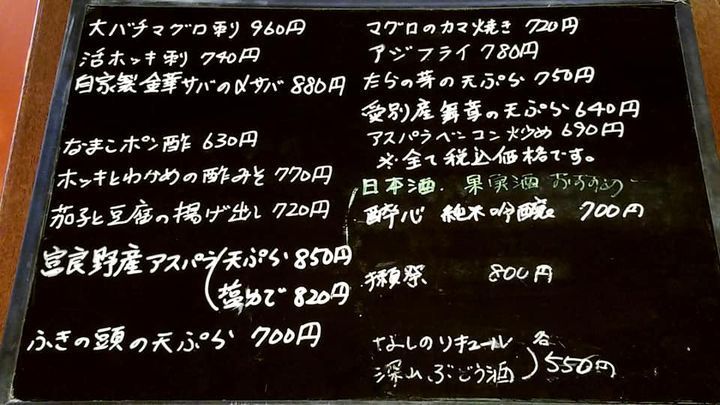 大バチマグロ刺 960円
活ホッキ刺 740円
自家製金華サバの〆サバ 880円
なまこポン酢 630円
ホッキとわけめの酢みそ 770円
茄子と豆腐の揚げ出し 720円
富良野産アスパラ 天ぷら 850円
塩ゆで 820円
ふきの頭の天ぷら 700円
マグロのカマ焼き 720円
アジフライ 780円
たらの芽の天ぷら 750円
愛別産舞茸の天ぷら 640円
アスパラベーコン炒め 690円
※全て税込価格です。
日本酒. 果実酒 おすすめ
酔心 純米吟醸 700円
獺祭 800円
なしのリキュール 各
深山ぶどう酒 550円